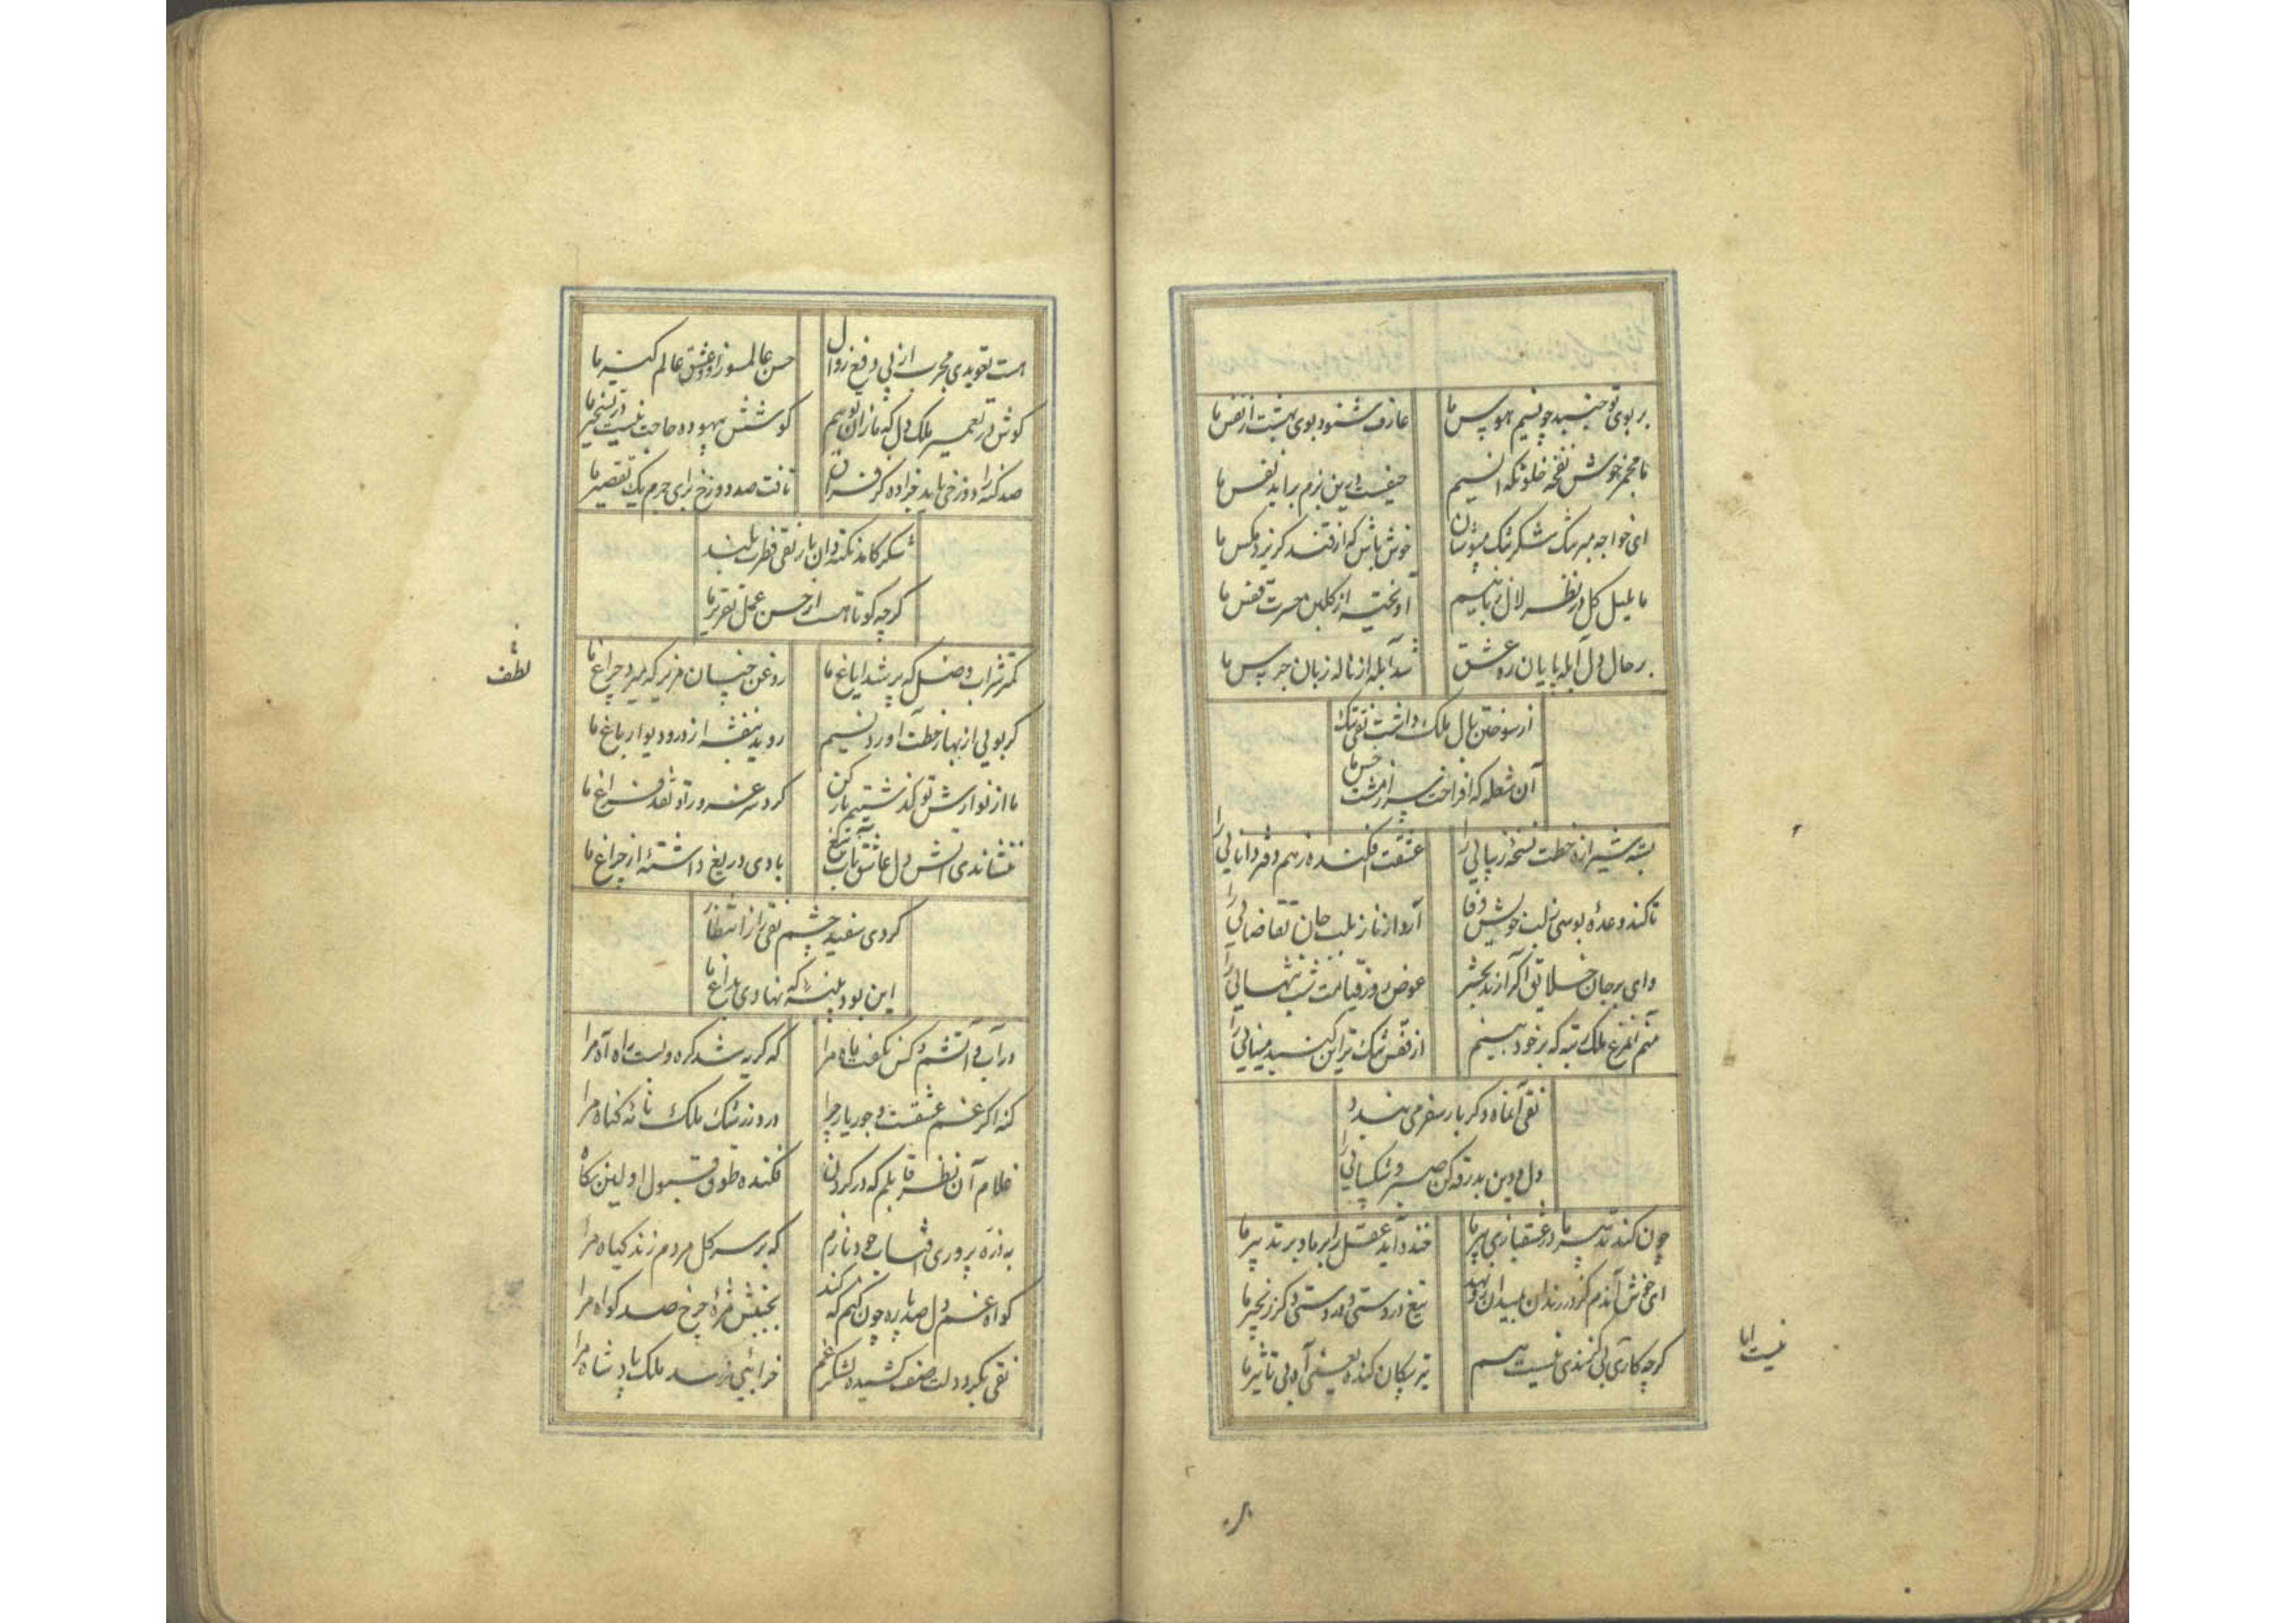 بر بوی تو جنبید چو نسیم هوس ما
عارف شنود بوی بهشت از نفس ما
ما مجمر خوش نفخه خلوتگه انسیم
حیفست درین بزم براید نفس ما
ای خواجه مبر شک شکر تنک مپوشان
خوش باش که از قند گریزد مکس ما
ما بلبل گل در نظر لال زبانیم
اویخته از گلبن حسرت قفس ما
بر حال دل آبله پایان ره عشق
شد آبله از ناله زبان جرس ما
از سوختن بال ملک داشت نقی ننک
آن شعله که افراخت سر از مشت خس ما
بسته شیرازه خطت نسخه زیبایی را
عشقت افکنده ز هم دفتر دانایی را
تا کند وعده بوسی ز لب خویش وفا
آرد از ناز بلب جان تقاضایی را
وای بر جان خلایق اگر آرند بحشر
عوض روز قیامت شب تنهایی را
منم آن مرغ ملک رتبه که بر خود بینم
از قفس تنک تر این کنبد مینایی را
نقی آن ماه دگر بار سفر می بندد
دل و دین بدرقه کن صبر و شکیبایی را
چون کند تدبیر ما در عشقبازی پیر ما
خنده آید عقل را بر ما و بر تدبیر ما
ای خوش آندم کز در زندان بمیدان
تیغ در دستی و در دستی دگر زنجیر ما
گرچه کاری بی کمندی نیست هم
تیر پیکان کنده یعنی آه بی تاثیر ما
نیست اما
هست تعویذی مجرب از پی دفع زوال
حسن عالمسوز او و عشق عالم کیر ما
کوش در تعمیر ملک دل که ما زان توهم
کوشش بیهوده حاجت نیست در تسخیر ما
صد کنه را دوزخی باید جزا ده کز فراق
تافت صد دوزخ برای جرم یک تقصیر ما
شکر کامد نکته دان یار نقی فطرت بلند
گرچه کوتاهست از حسن عمل تقریر ما
کمتر شراب وصل که پر شد ایاغ ما
روغن چنان مریز که میرد چراغ ما
لطف
گر بویی از بهار خطت آورد نسیم
روید بنفشه از در و دیوار باغ ما
ما از نوازش تو گذشتیم ناز کن
کرد سر غرور تو نقد فراغ ما
ننشاندی آتش دل عاشق بآب تیغ
بادی دریغ داشته از چراغ ما
کردی سفید چشم نقی را ز انتظار
این بود پنبه که نهادی بداغ ما
در آب و آتشم و کس نگفت ماه مرا
که گریه شد گره و بست راه آه مرا
کنه اکر غم عشقست و جور یار چرا
درو ز رشک ملک نامه گناه مرا
غلام آن نظر قابلم که در کردن
فکنده طوق قبول اولین نگاه مرا
به ذره پروری آفتاب خود نازم
که بر سر گل مردم زند کیاه مرا
گواه غم دل صد پاره چون کنم که کند
بجنبش مژه چرخ صد گواه مرا
نقی بکرد دلت صف کشیده لشکر غم
خرابیی نرسد ملک پادشاه مرا